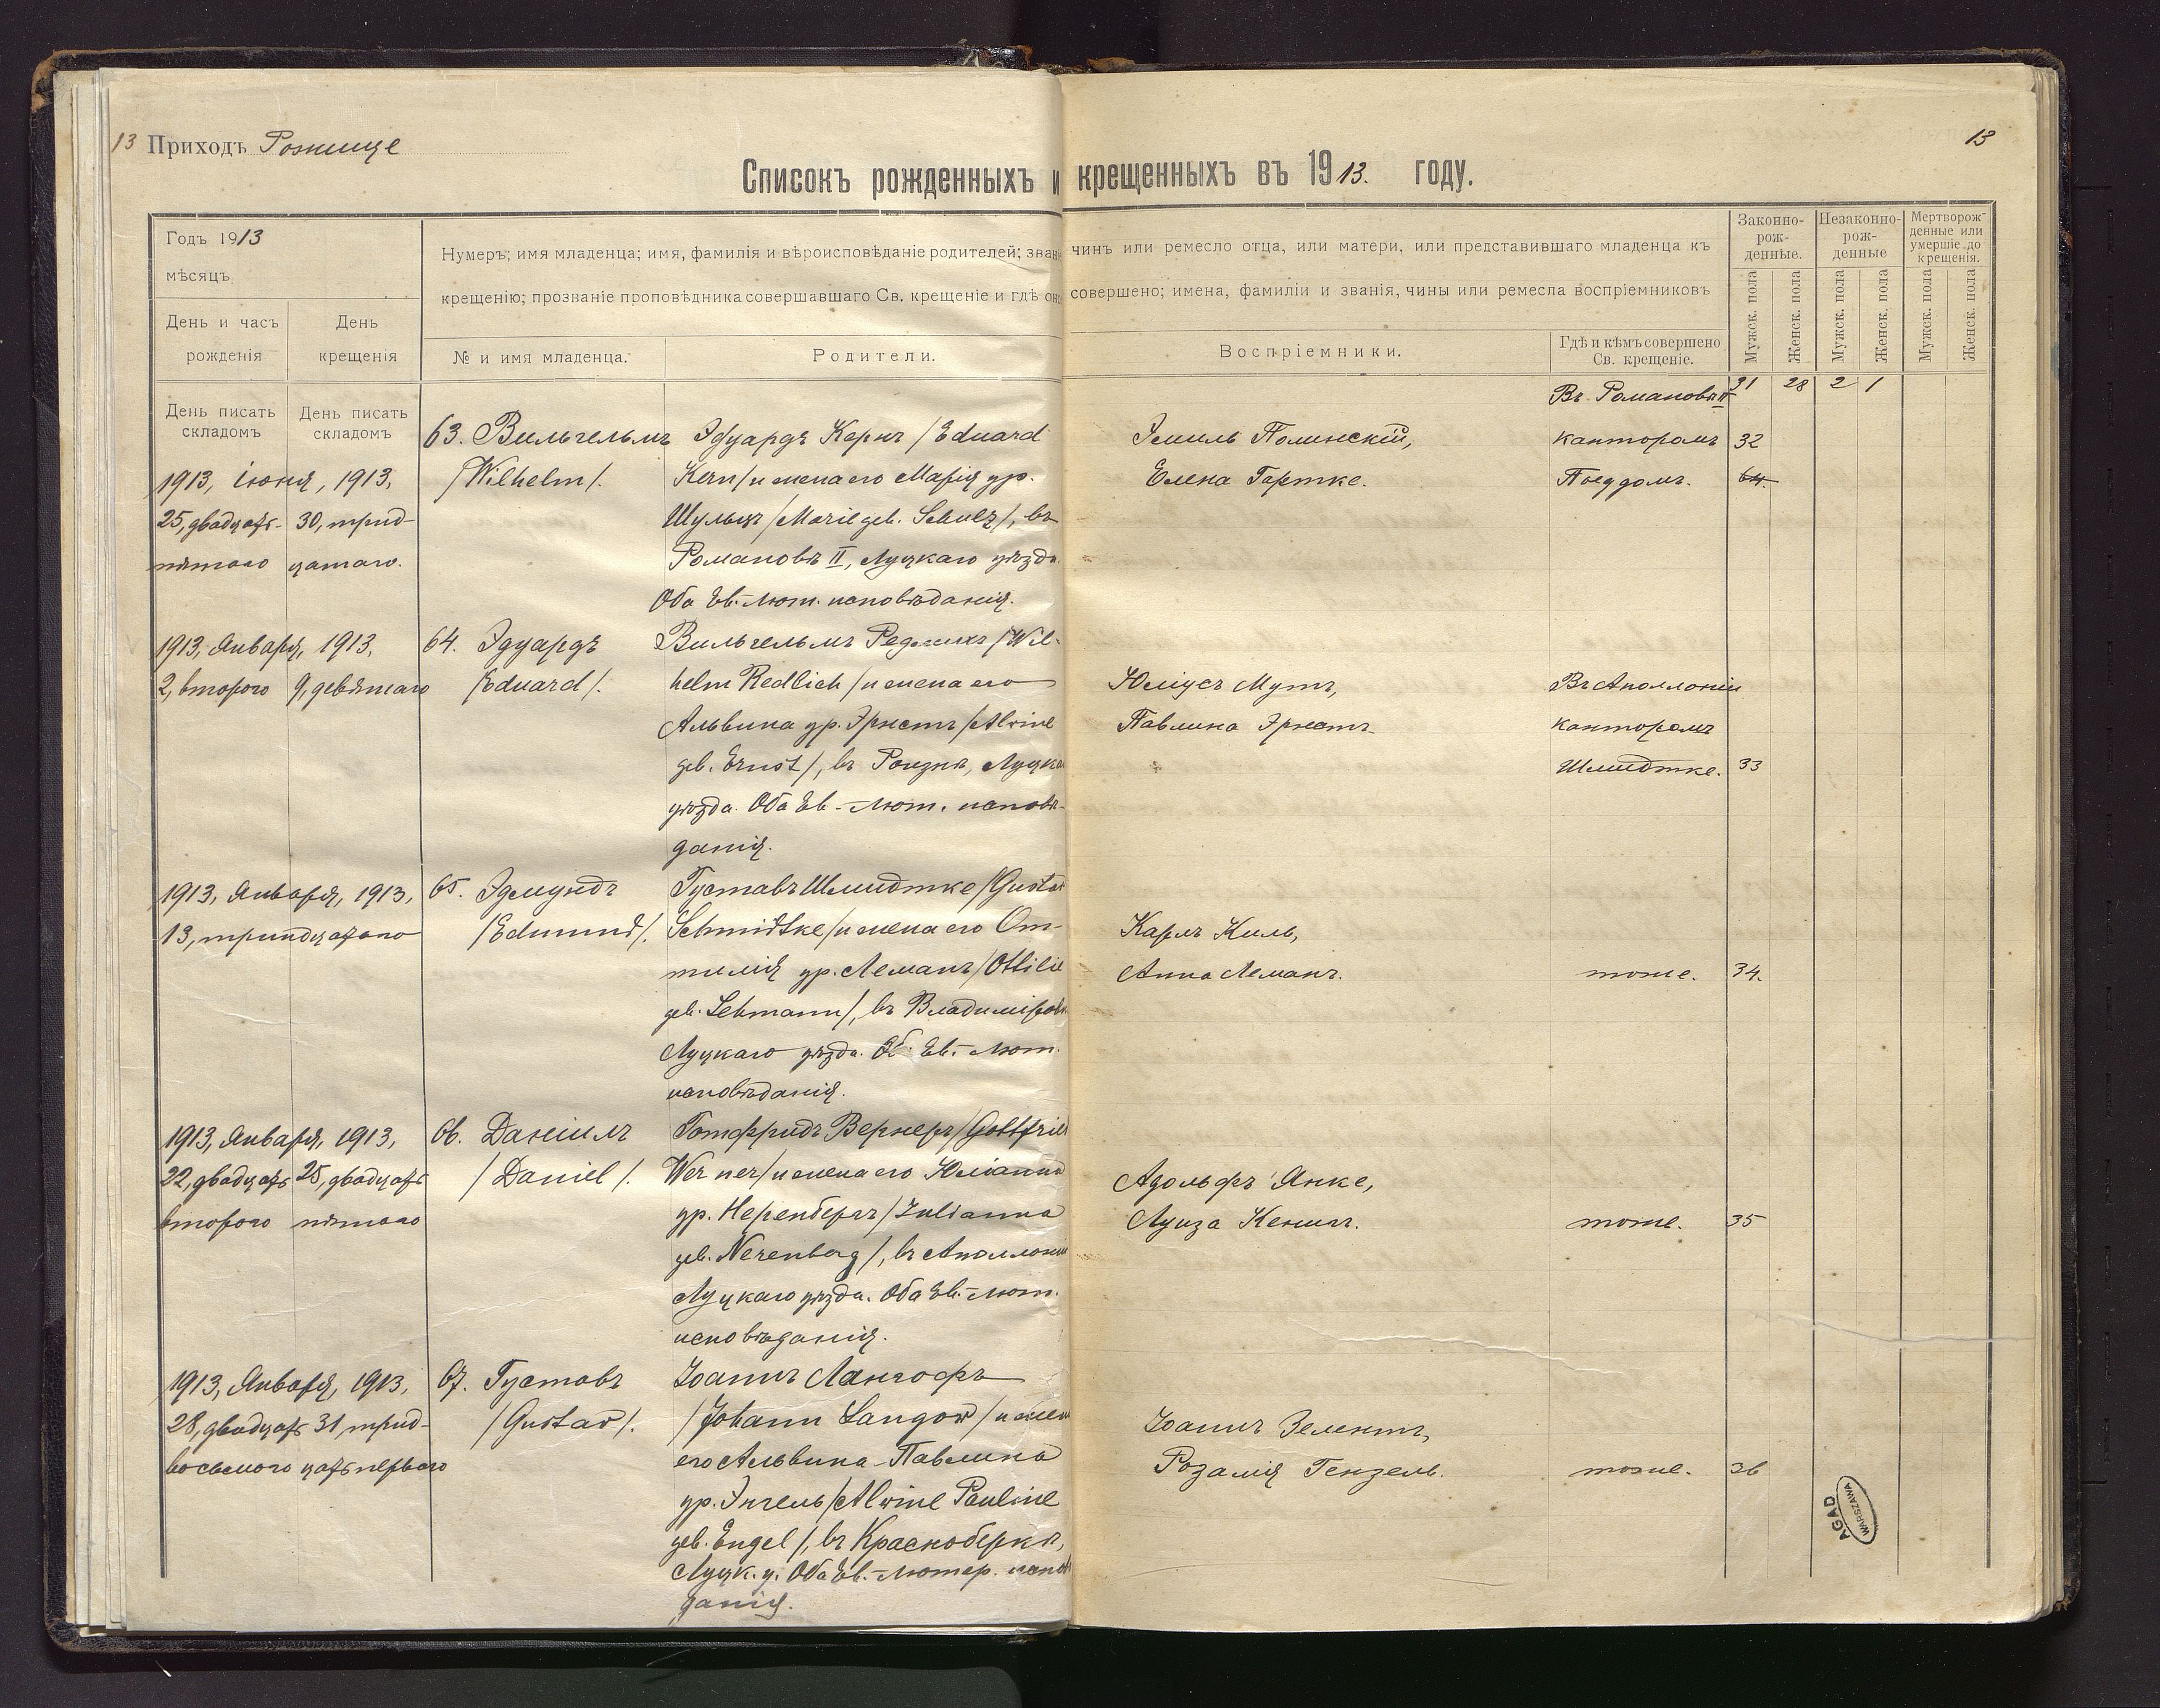 13 Приходъ Рожище
13
Списокъ рожденныхъ и крещенныхъ въ 1913. году.
Годъ 1913
мѣсяцъ
День и часъ рожденія
День крещенія
Нумеръ; имя младенца; имя, фамилія и вѣроисповѣданіе родителей; зван чинъ или ремесло отца, или матери, или представившаго младенца къ
крещенію; прозваніе проповѣдника совершавшаго Св. крещеніе и гдѣ оно совершено; имена, фамиліи и званія, чины или ремесла воспріемниковъ
№ и имя младенца.
Родители.
Воспріемники.
Гдѣ и кѣмъ совершено
Св. крещеніе.
Законно-
рож-
денные.
Незаконно-
рож-
денные
Мертворож-
денные или
умершіе до
крещенія.
Мужск. пола
Женск. пола
Мужск. пола
Женск. пола
Мужск. пола
Женск. пола
День писать
складомъ
День писать
складомъ
31 28 2 1
1913, іюня, 1913,
25, двадцать- 30, трид-
пятаго цатаго.
63. Вильгельмъ
/Wilhelm/.
Эдуардъ Кернъ /Eduard
Kern/ и жена его Марія ур.
Шульцъ /Marie geb. Schulz/, въ
Романовѣ II, Луцкаго уѣзда
Оба Ев.-Лют. исповѣданія.
Эмиль Полинскій,
Елена Гертке.
Въ Романовѣ II
канторомъ 32
64.
1913, Января, 1913.
2, второго 9, девятаго
64. Эдуардъ
/Eduard/.
Вильгельмъ Редлихъ /Wil-
helm Redlich/ и жена его
Альвина ур. Эрнстъ /Alvine
geb. Ernst/, въ
уѣзда. Оба Ев.-Лют. исповѣ-
данія.
Юліусъ Мутъ,
Павлина Эрнстъ
Въ Аполлоніи
канторомъ
Шмидтке. 33
1913, Января, 1913,
13, тринадцатаго
65. Эдмундъ
/Edmund/.
Густавъ Шмидтке /Gustav
Schmidtke/ и жена его От-
тилія ур. Леманъ /Ottilie
geb. Lehmann/, въ Владиміровкѣ
Луцкаго уѣзда. Об. Ев.-Лют.
исповѣданія.
Карлъ Киль,
Анна Леманъ.
тоже. 34.
1913, Января, 1913,
22, двадцать 25, двадцать
второго пятаго
66. Даніилъ
/Daniel/.
Готфридъ Вернеръ /Gottfried
Werner/ и жена его Юліанна
ур. Неренбергъ /Julianna
geb. Nerenberg/, въ Аполлоніи
Луцкаго уѣзда. Оба Ев.-Лют.
исповѣданія.
Адольфъ Янке,
Луиза
тоже. 35
1913, Января, 1913,
28, двадцать 31, трид-
восьмого цать перваго
67. Густавъ
/Gustav/.
Іоаннъ Лангофъ
/Johann Langow/ и жена
его Альвина-Павлина
ур. Энгель /Alvine Pauline
geb. Engel/, въ Красноберкѣ,
Луцк. у. Оба Ев.-Лютер. исповѣ
данія.
Іоаннъ Зелентъ,
Розалія Гензель.
тоже. 36
AGAD
WARSZAWA